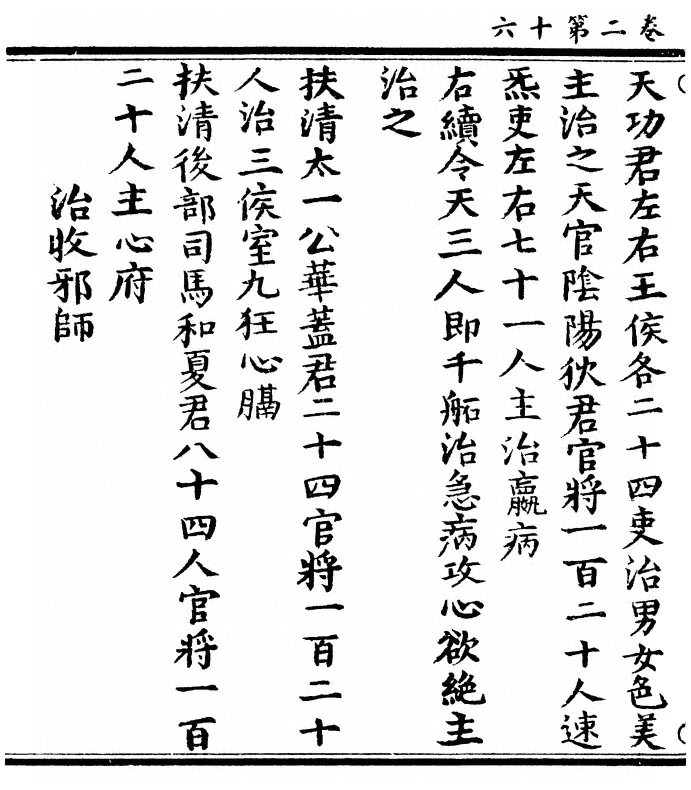 卷二第十六
天功君左右王侯各二十四吏治男女色美
主治之天官陰陽狄君官將一百二十人速
炁吏左右七十一人主治羸病
右續令天三人即千䑽治急病攻心欲絕主
治之
扶清太一公華蓋君二十四官將一百二十
人治三侯室九狂心膈
扶清後部司馬和夏君八十四人官將一百
二十人主心府
治收邪師